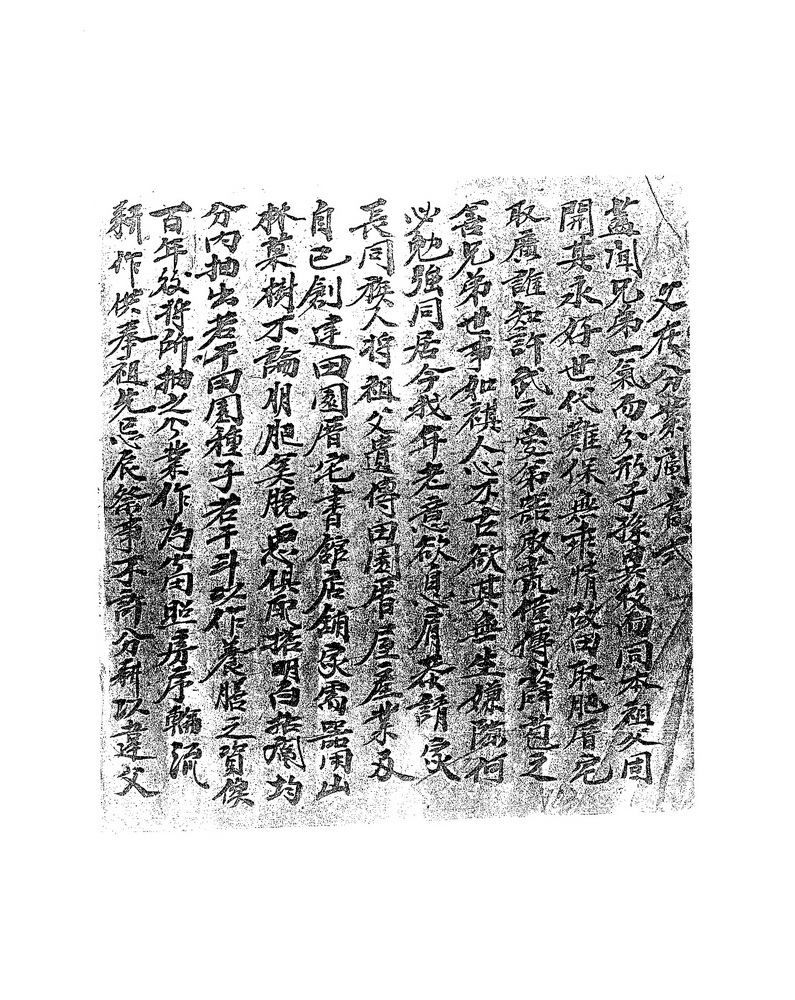 父在分業鬮書式
蓋聞兄弟一氣而分形子孫異枝而同本祖父固
開其永好世代難保無乖情故田取肥厝宅
取廣誰知許武之愛弟器取荒僅傳薛苞之
害兄弟世事如棋人心不古欲其無生嫌隙何
必勉強同居今我年老意欲息肩爰請家
長同族人將祖父遺傳田園厝屋產業及
自己創建田園厝宅書館店銷家需器用山
林菓樹不論朋肥美脫惡俱配搭明白拈鬮均
分內抽出若干田園種子若干斗以作養膳之資俟
百年後將所抽之公業作為當照房序輪流
耕作供奉祖先忌辰祭事不許分耕以違父